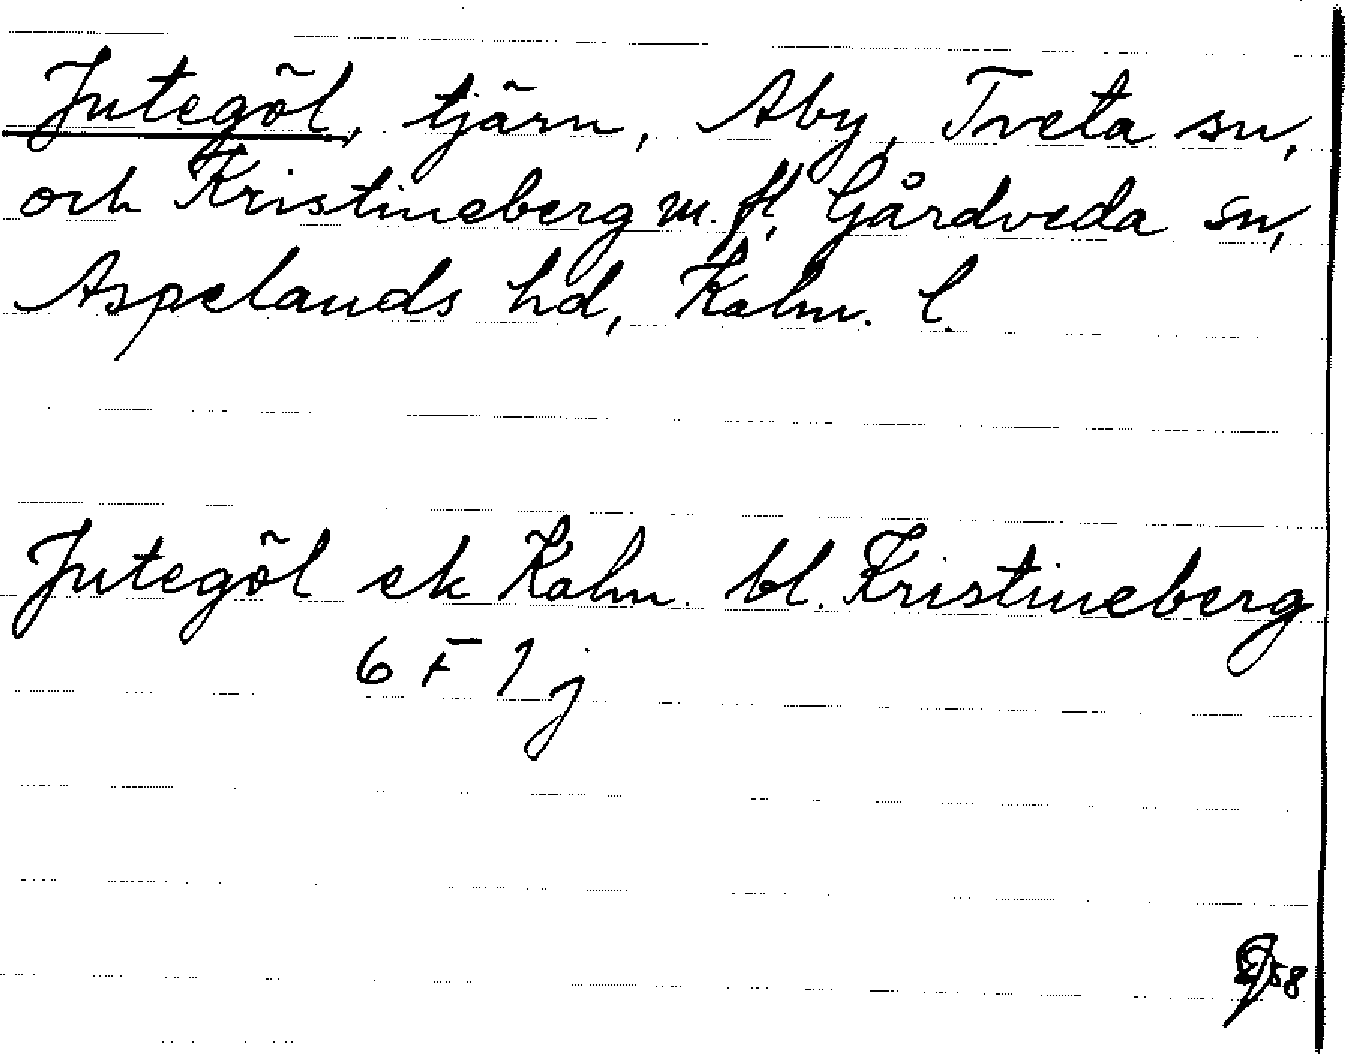 Jutegöl, tjärn, Aby, Tveta sn,
och Kristineberg m. fl. Gårdveda sn,
Aspelands hd, Kalm. l.
Jutegöl ek Kalm. bl. Kristineberg
6 F 1 j
58